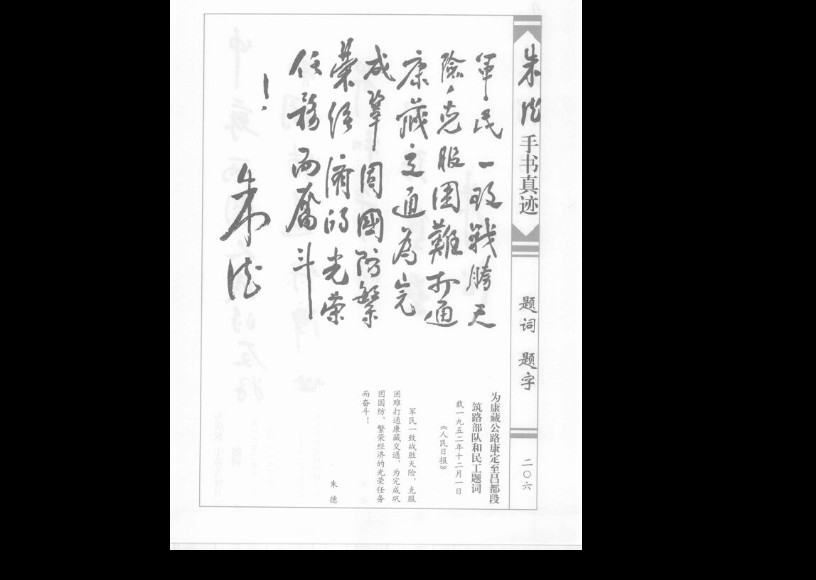 朱德手书真迹
题词 题字
二〇六
军民一致战胜天
险，克服困难打通
康藏交通，为完
成巩固国防、繁
荣经济的光荣
任务而奋斗
！
朱德
为康藏公路康定至昌都段
筑路部队和民工题词
载一九五二年十二月一日
《人民日报》
军民一致战胜天险，克服
困难打通康藏交通，为完成巩
固国防、繁荣经济的光荣任务
而奋斗！
朱 德